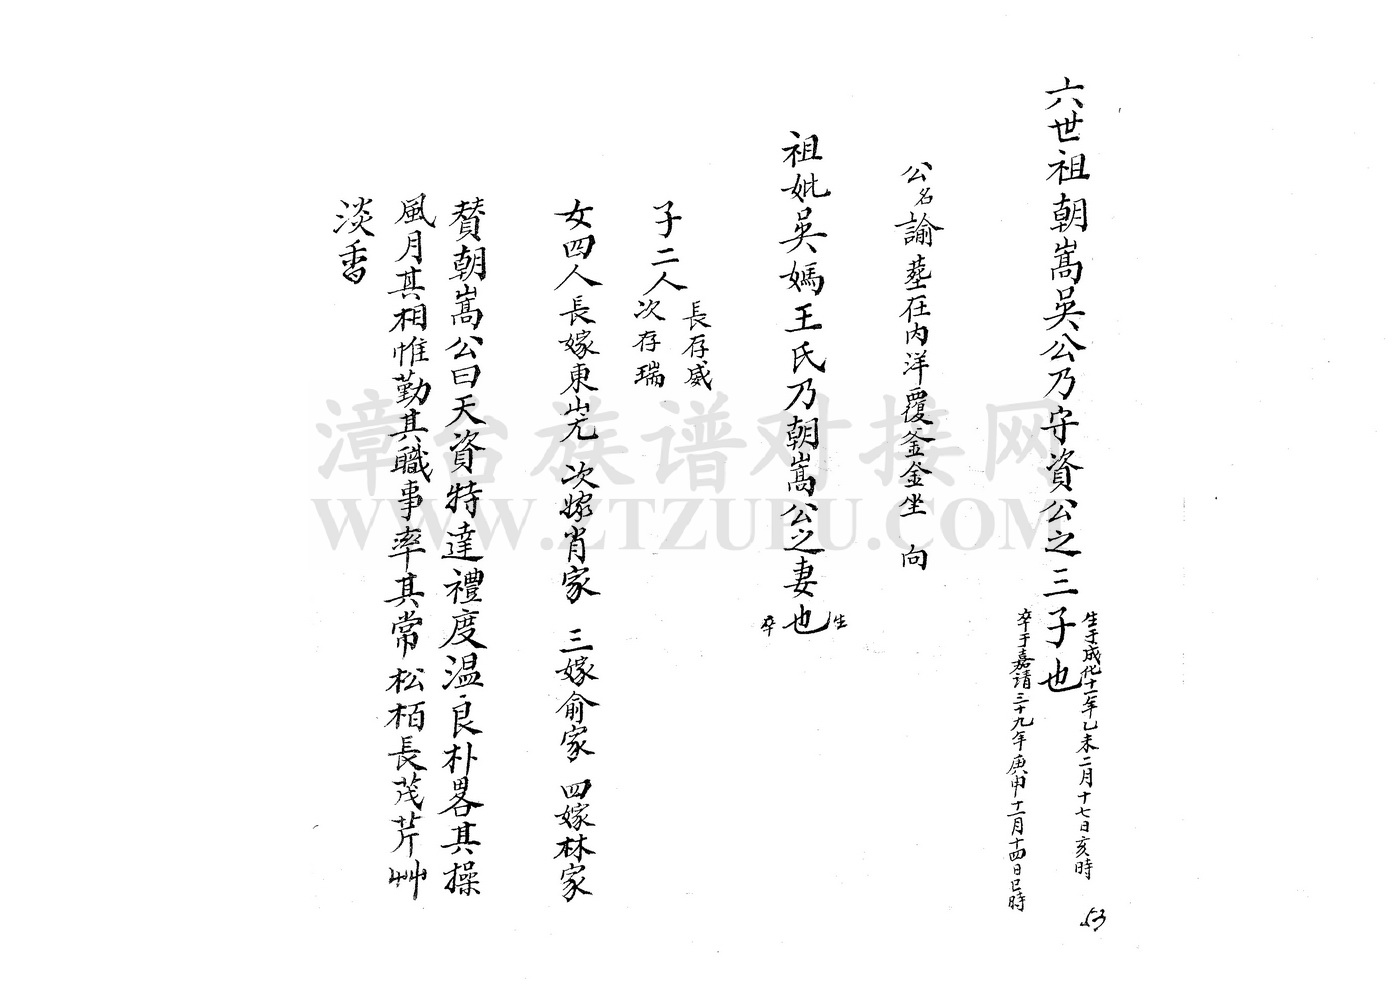 六世祖朝嵩吳公乃守資公之三子也
生于成化十一年乙未二月十七日亥時
卒于嘉請三十九年庚申十一月十四日巳時
公名諭葬在內洋覆釜金坐 向
祖妣吳媽王氏乃朝嵩公之妻也
生
卒
子二人
長存威
次存瑞
女四人長嫁東 次嫁肖家 三嫁俞家 四嫁林家
贊朝嵩公曰天資特達禮度温良朴畧其操
風月其相惟勤其職事率其常松栢長茂芹艸
淡香
53
漳台族谱对接网
WWW.ZTZUPU.COM